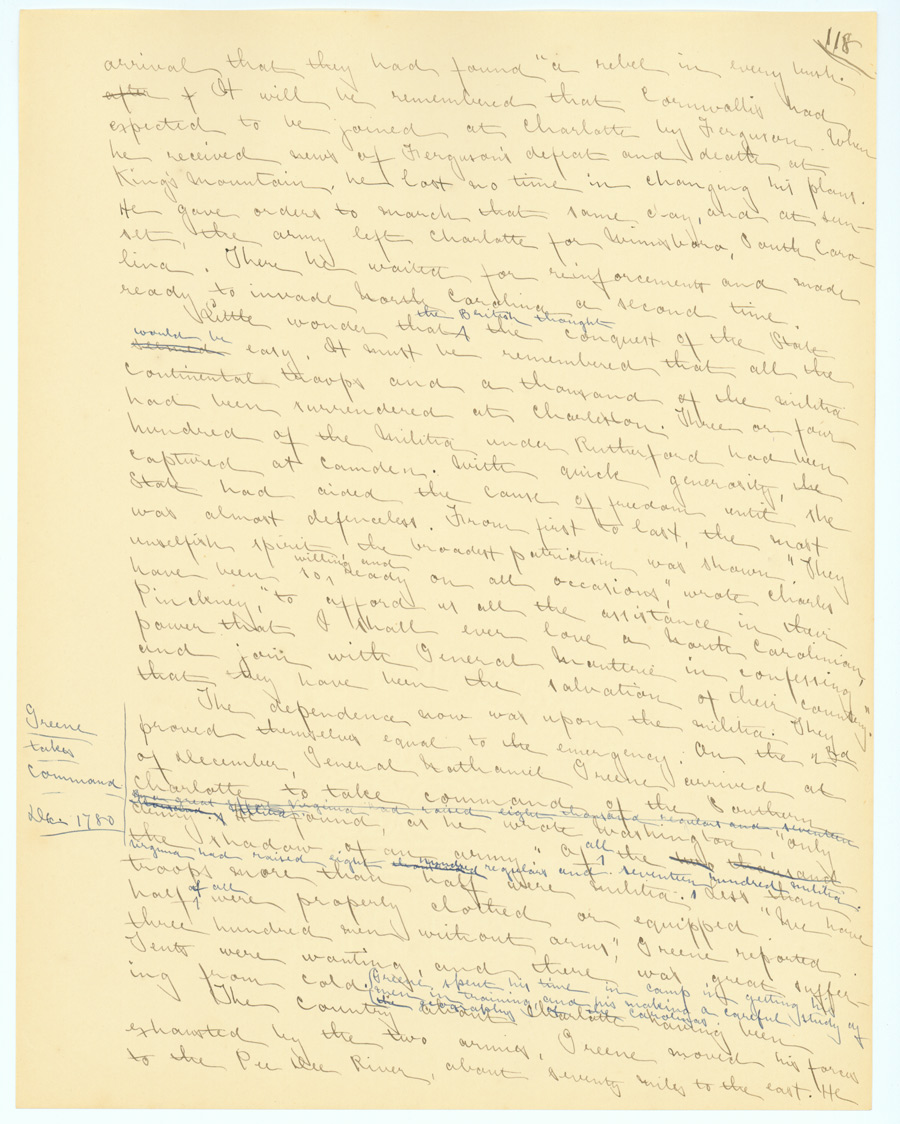 118
arrival that they had found "a rebel in every bush.
after & It will be remembered that Cornwallis had
expected to be joined at Charlotte by Ferguson. When
he received news of Ferguson's defeat and death at
King's Mountain, he lost no time in changing his plans.
He gave orders to march that same day, and at sun-
set, the army left Charlotte for Winnsboro, South Caro-
lina. There he waited for reinforcements and made
ready to invade North Carolina a second time.
Little wonder that the British thought the conquest of the State
seemed would be easy. It must be remembered that all the
Continental troops and a thousand of the militia
had been surrendered at Charleston. Three or four
hundred of the militia under Rutherford had been
captured at Camden. With quick generosity, the
State had aided the cause of freedom until she
was almost defenceless. From first to last, the most
unselfish spirit, the broadest patriotism was shown. "They
have been so willing and ready on all occasions," wrote Charles
Pinckney, "to afford us all the assistance in their
power that I shall ever love a North Carolinian,
and join with General Moultrie in confessing
that they have been the salvation of their country."
The dependence now was upon the militia. They
proved themselves equal to the emergency. On the 2nd
of December, General Nathaniel Greene arrived at
Charlotte to take command of the Southern
Greene
takes
command
Dec 1780
Virginia had raised eight thousand regulars and seventeen
army. He found, as he wrote Washington, "only
the shadow of an army." Of all the two thousand
Virginia had raised eight hundred regulars and seventeen hundred militia.
troops more than half were militia. Less than
half of all were properly clothed or equipped. "We have
three hundred men without arms," Greene reported.
Tents were wanting, and there was great suffer-
ing from cold. Greene spent his time in camp in getting his
men in training and his making a careful study of
the geography of the Carolinas.
The country about Charlotte having been
exhausted by the two armies, Greene moved his forces
to the Pee Dee River, about seventy miles to the east. He